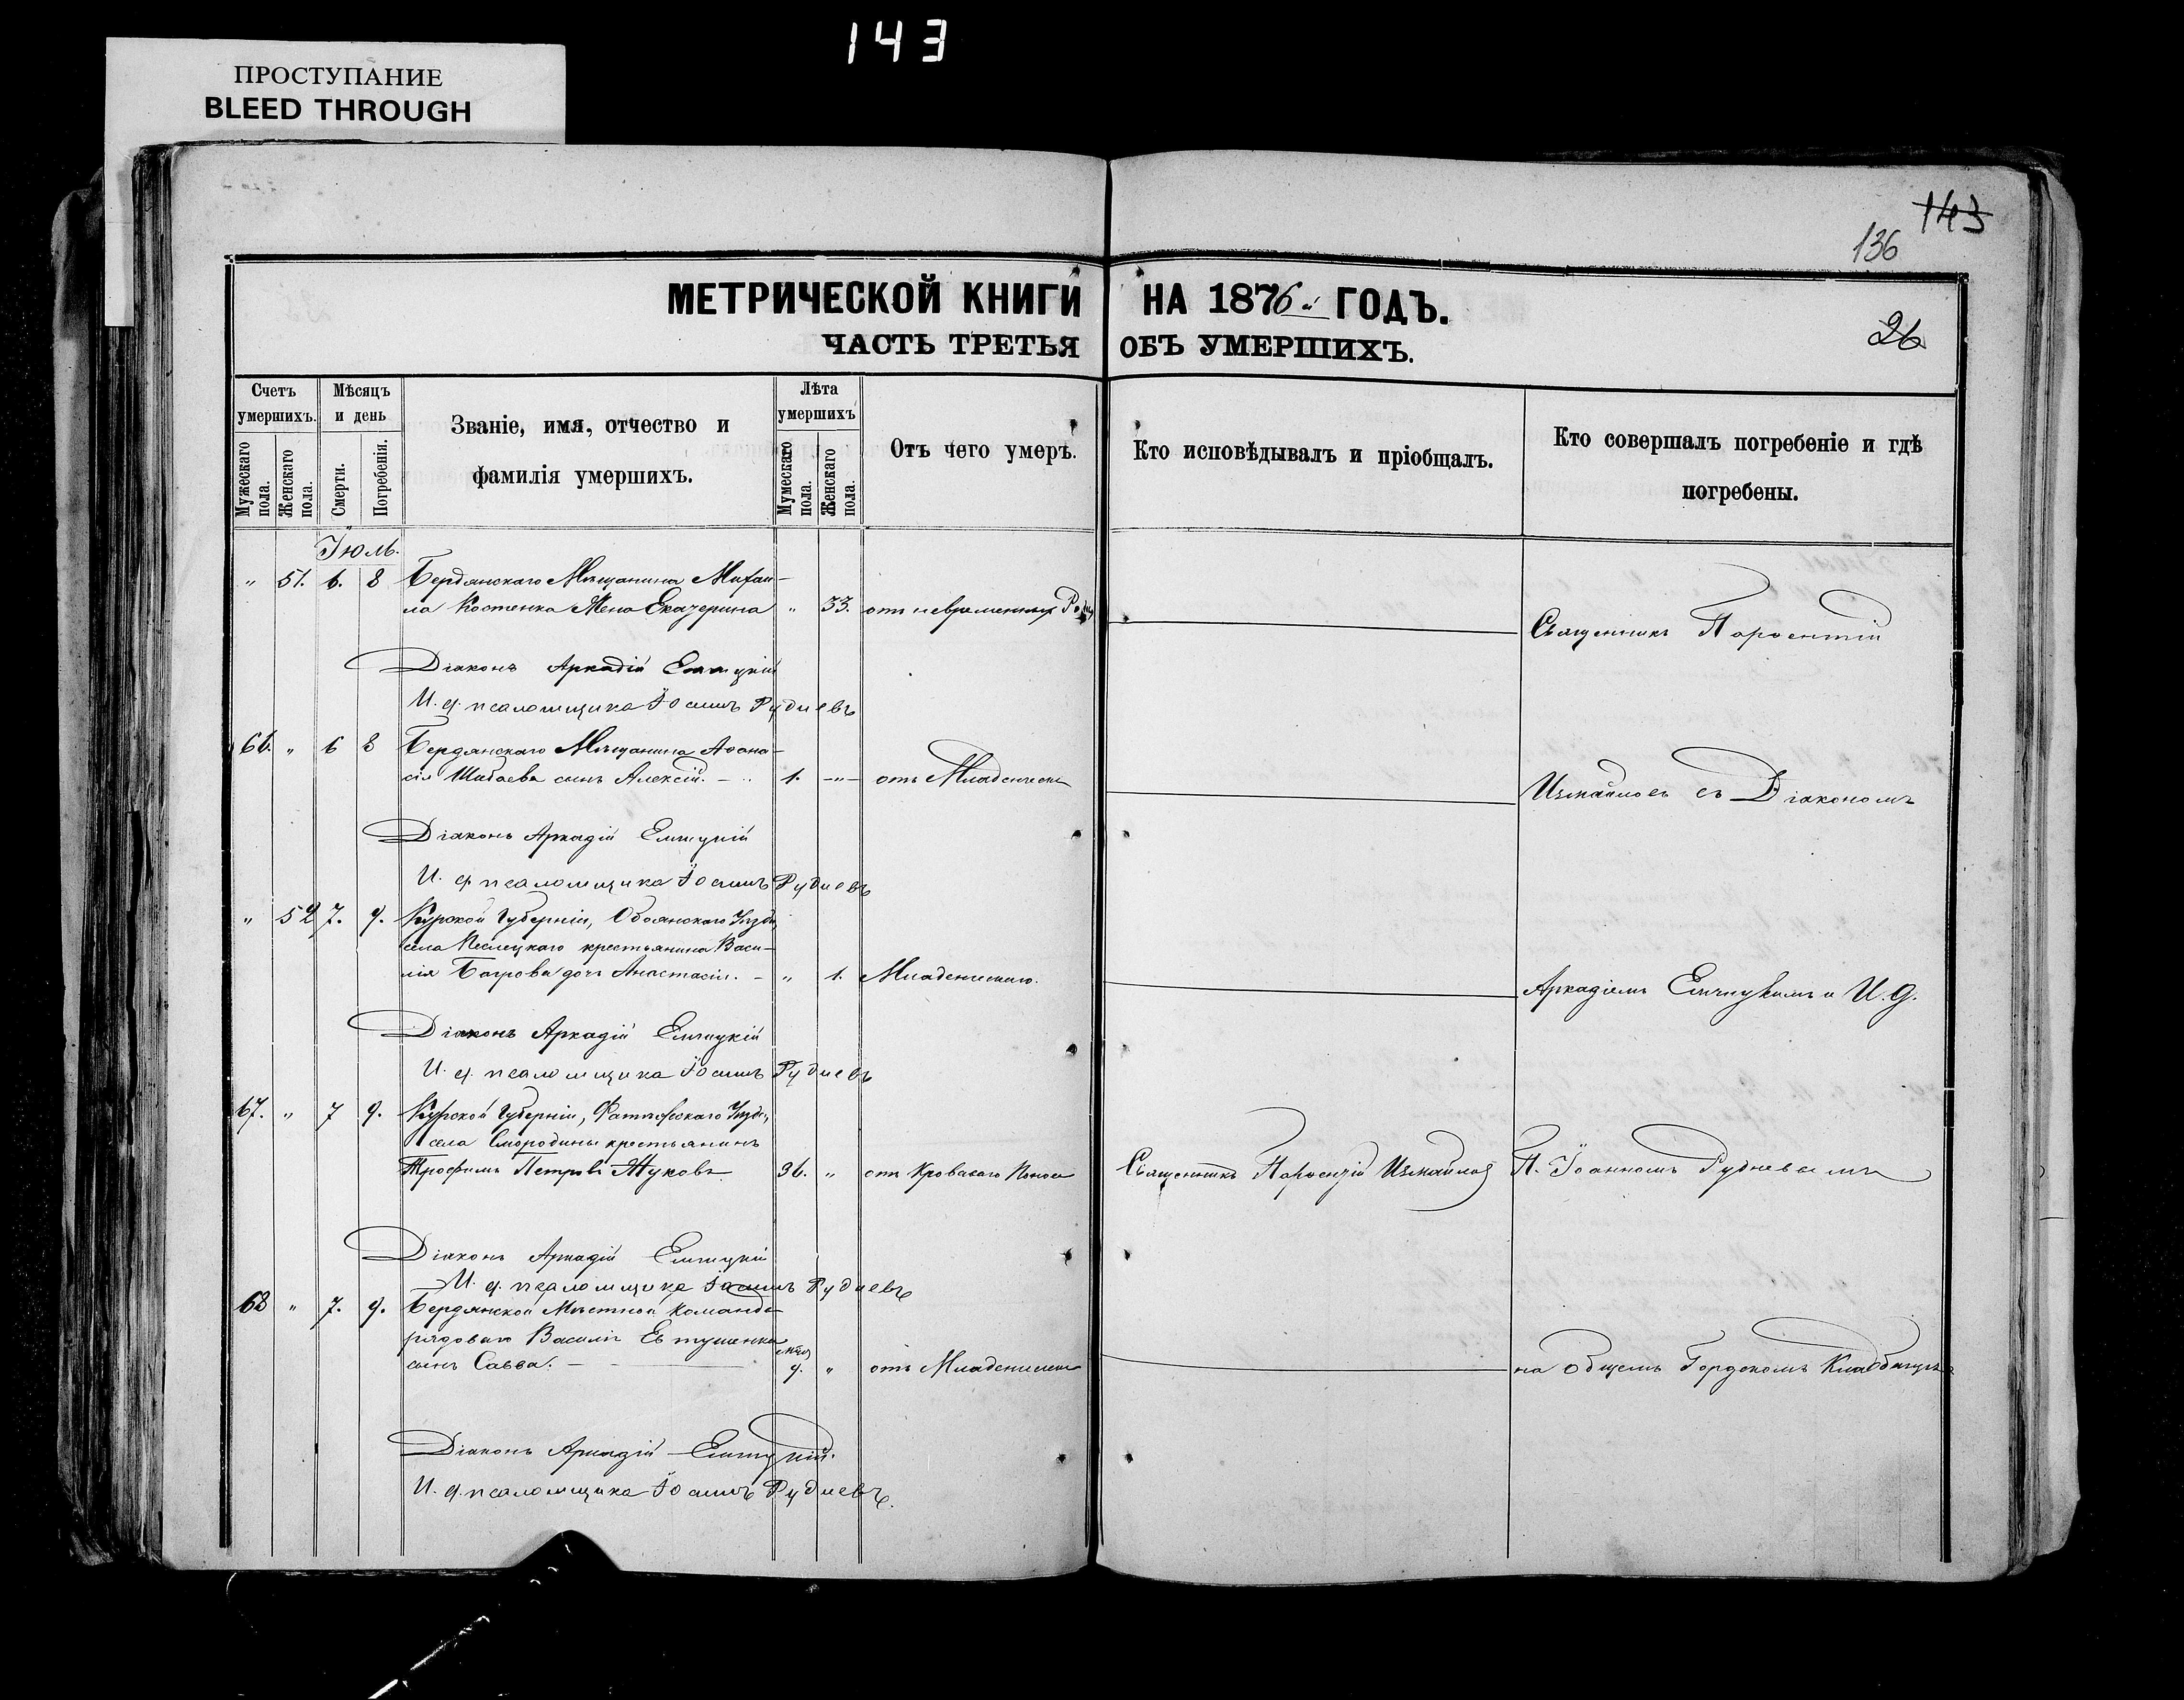 143
ПРОСТУПАНИЕ
BLEED THROUGH
143
136
МЕТРИЧЕСКОЙ КНИГИ НА 1876й ГОДЪ.
26
ЧАСТЬ ТРЕТЬЯ ОБЪ УМЕРШИХЪ.
Счетъ умершихъ.
Мужескаго пола.
Женскаго пола.
Мѣсяцъ и день
Смерти.
Погребенія.
Званіе, имя, отчество и
фамилія умершихъ.
Лѣта умершихъ
Мужескаго пола.
Женскаго пола.
Отъ чего умеръ.
Кто исповѣдывалъ и пріобщалъ.
Кто совершалъ погребеніе и гдѣ
погребены.
Іюль.
" 51. 6. 8 Бердянскаго Мѣщанина Михаи-
ла Костенка Жена Екатерина " 33. отъ невременныхъ
Священникъ Парѳентій
Діаконъ Аркадій
И. д. псаломщика Рудневъ
66. " 6 8 Бердянскаго Мѣщанина Аѳана-
сія Шибаева сынъ Алексій. 1. " отъ Младенческ
Измайловъ съ Діакономъ
Діаконъ Аркадій
И. д. псаломщика Рудневъ
" 52 7. 9. Курской Губерніи, Обоянскаго Уѣзда,
села крестьянина Васи-
лія дочь Анастасія. " 1. Младенческаго.
Аркадіемъ и И. д.
Діаконъ Аркадій
И. д. псаломщика Рудневъ
67. " 7 9. Курской Губерніи, Уѣзда,
села Смородины крестьянинъ
Трофимъ Петровъ Жуковъ 36. " отъ Кроваваго Поноса Священникъ Парѳентій Измайловъ П. Іоанномъ Рудневымъ
Діаконъ Аркадій
И. д. псаломщика Рудневъ
68 " 7. 9. Бердянской Мѣстной Команды
рядоваго Василія Евтушенка
сынъ Савва. 9. " отъ Младенческ на общемъ Городскомъ Кладбищѣ
Діаконъ Аркадій
И. д. псаломщика Рудневъ.